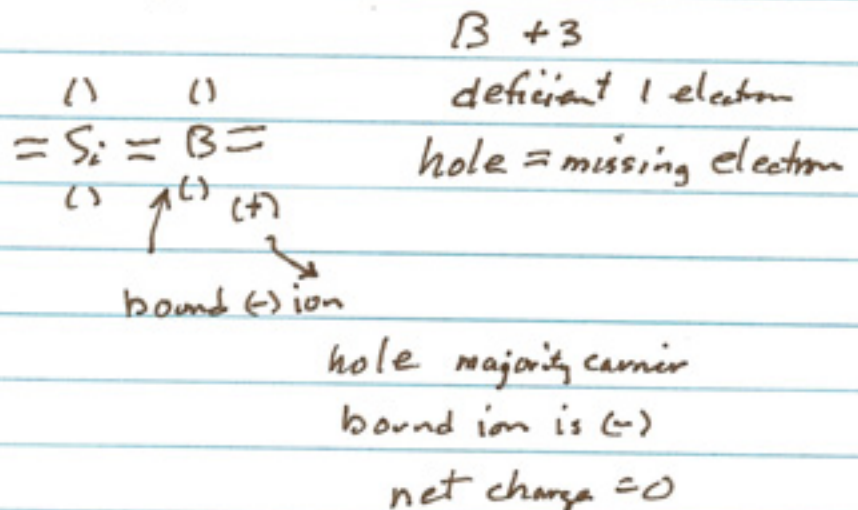 B +3
deficient 1 electron
() ()
= Si = B =
() () (+)
hole = missing electron
bound (-) ion
hole majority carrier
bound ion is (-)
net charge = 0